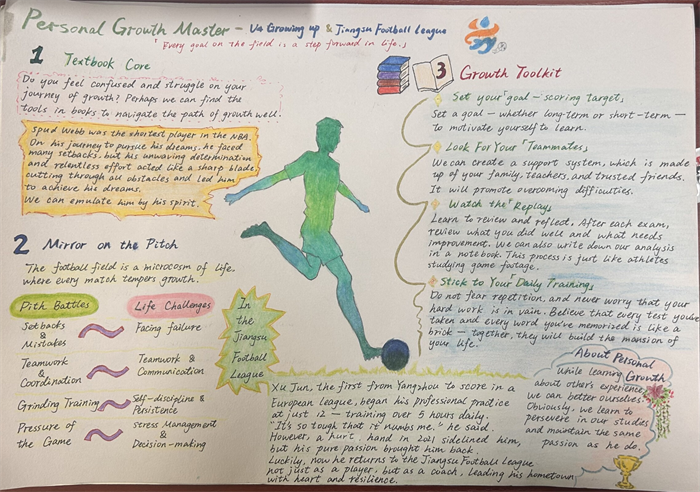 Personal Growth Master — U4 Growing up & Jiangsu Football League
「Every goal on the field is a step forward in life.」
1 Textbook Core
Do you feel confused and struggle on your
journey of growth? Perhaps we can find the
tools in books to navigate the path of growth well.
Spud Webb was the shortest player in the NBA.
On his journey to pursue his dreams, he faced
many setbacks, but his unwaving determination
and relentless effort acted like a sharp blade,
cutting through all obstacles and led him
to achieve his dreams.
We can emulate him by his spirit.
2 Mirror on the Pitch
The football field is a microcosm of life,
where every match tempers growth.
Pith Battles
Life Challenges
Setbacks & Mistakes
Facing failure
Teamwork & Coordination
Teamwork & Communication
Grinding Training
Self-discipline & Persistence
Pressure of the Game
stress Management & Decision-making
In
the
Jiangsu
Football
League
Xu Jun, the first from Yangzhou to score in a
European League, began his professional practice
at just 12 — training over 5 hours daily.
"It's so tough that it numbs me." he said.
However, a hurt hand in 2021 sidelined him,
but his pure passion brought him back.
Luckily, now he returns to the Jiangsu Football League
not just as a player, but as a coach, leading his hometown
with heart and resilience.
3 Growth Toolkit
Set your「goal — scoring target」
Set a goal — whether long-term or short-term —
to motivate yourself to learn.
Look For Your「Teammates」
We can create a support system, which is made
up of your family, teachers, and trusted friends.
It will promote overcoming difficulties.
Watch the「Replay」
Learn to review and reflect. After each exam,
review what you did well and what needs
improvement. We can also write down our analysis
in a notebook. This process is just like athletes
studying game footage.
Stick to Your「Daily Training」
Do not fear repetition, and never worry that your
hard work is in vain. Believe that every test you've
taken and every word you've memorized is like a
brick — together, they will build the mansion of
your life.
About Personal
Growth
While learning
about other's experience,
we can better ourselves.
Obviously, we learn to
persevere in our studies
and maintain the same
passion as he do.